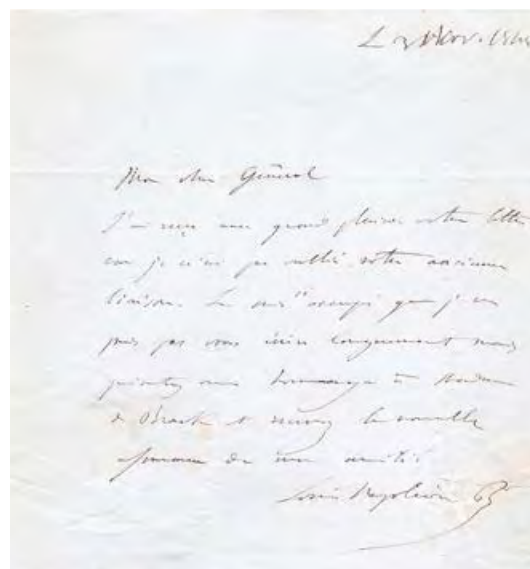 L 3 Nov. 184
Mon cher Général
J'ai reçu avec grand plaisir votre lettre
car je n'ai pas oublié votre ancienne
liaison. Je suis si occupé que je ne
puis pas vous écrire longuement mais
présentez mes hommages à Madame
de Brack et recevez la nouvelle
assurance de mon amitié.
Louis Napoléon B